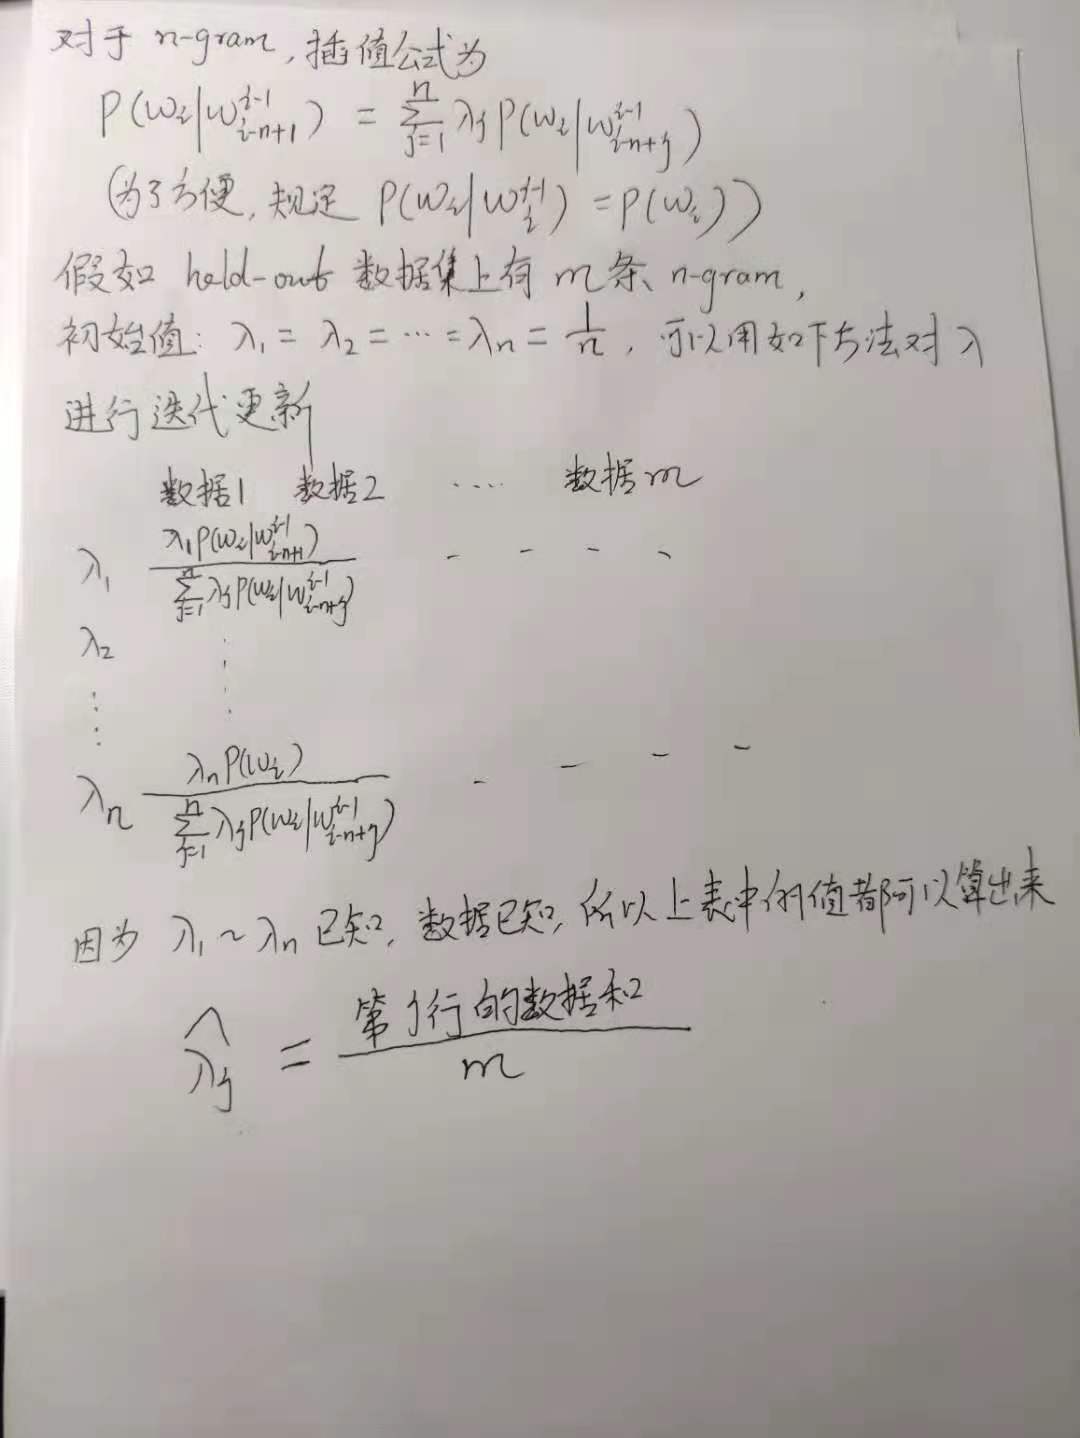 对于 n-gram, 插值公式为
P(w_i|w_{i-n+1}^{i-1}) = \sum_{j=1}^{n} λ_j P(w_i|w_{i-n+j}^{i-1})
(为了方便, 规定 P(w_i|w_i^{i-1}) = P(w_i))
假如 held-out 数据集上有 m 条 n-gram,
初始值: λ_1 = λ_2 = ... = λ_n = \frac{1}{n}, 可以用如下方法对 λ
进行迭代更新
数据1 数据2 .... 数据m
λ_1 \frac{λ_1 P(w_i|w_{i-n+1}^{i-1})}{\sum_{j=1}^{n} λ_j P(w_i|w_{i-n+j}^{i-1})} - - - -
λ_2 ⋮
⋮ ⋮
λ_n \frac{λ_n P(w_i)}{\sum_{j=1}^{n} λ_j P(w_i|w_{i-n+j}^{i-1})} - - - -
因为 λ_1 ~ λ_n 已知, 数据已知, 所以上表中的值都可以算出来
\hat{λ_j} = \frac{第j行的数据和}{m}